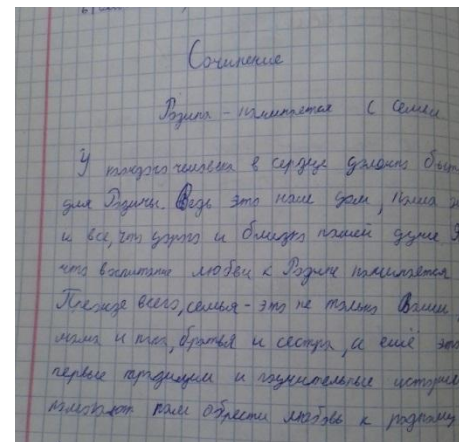 Сочинение
Родина - начинается с семьи
У каждого человека в сердце должно быть
для Родины. Ведь это наш дом, наша
и все, что дорого и близко нашей душе. Я
что воспитание любви к Родине начинается
Прежде всего, семья - это не только Ваши
мама и папа, братья и сестра, а ещё это
первые традиции и поучительные истории
помогают нам обрести любовь к родному